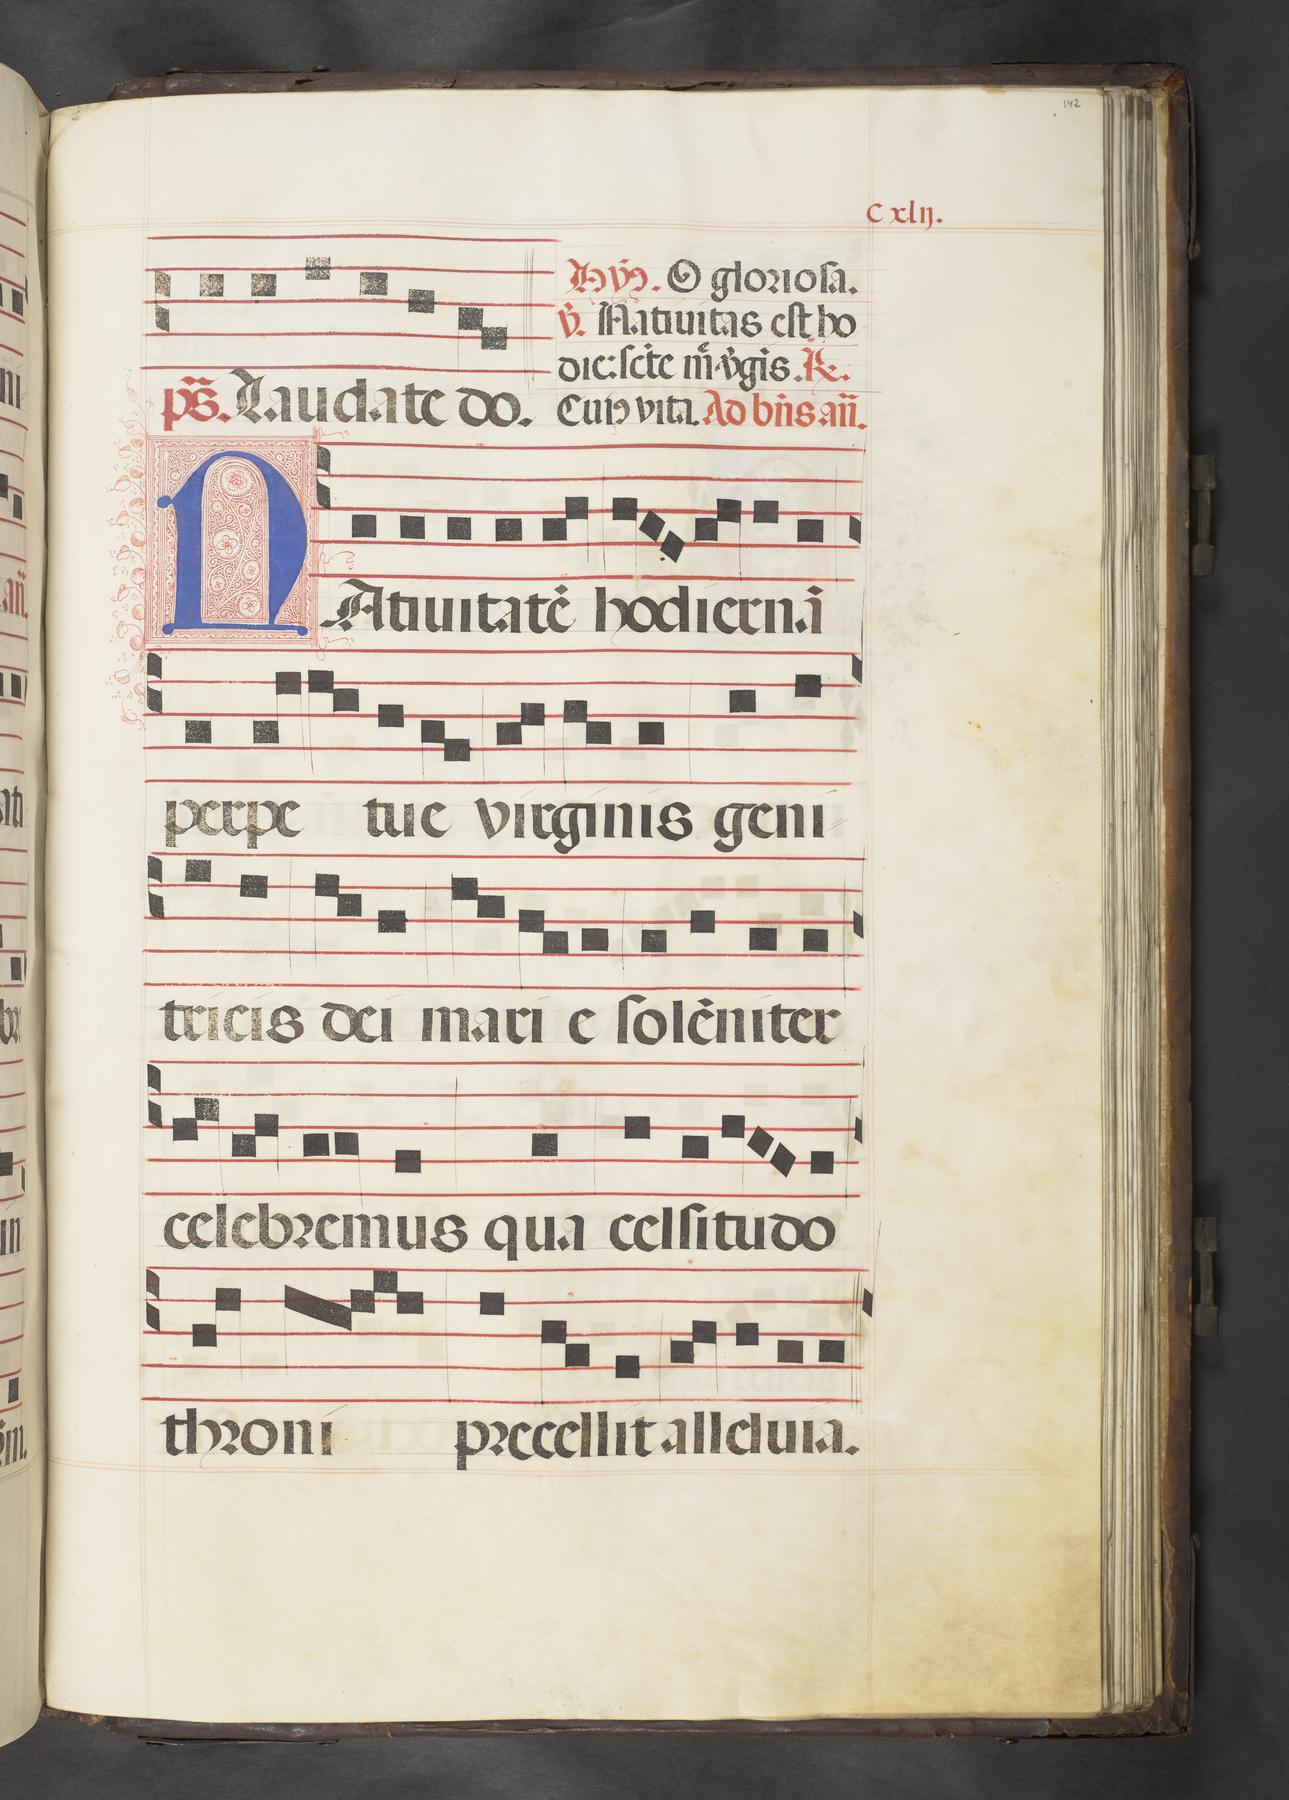 142
C xlij.
Hyn. O gloriosa.
v. Natiuitas est ho
die: scte mr vgis. R.
Cuiꝰ vita. Ad bn̄s an̄.
ps. Laudate do.
NAtiuitatē hodiernā
perpe tue virginis geni
tricis dei mari e solēniter
celebremus qua celsitudo
throni precellit alleluia.